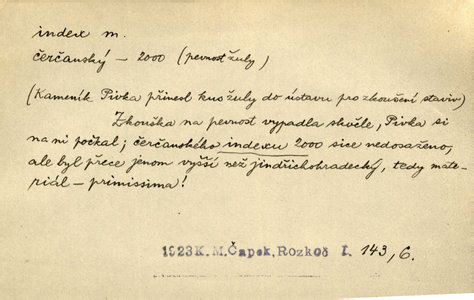 index m.
čerčanský – 2000 (pevnost žuly)
(Kameník Pivka přinesl kus žuly do ústavu pro zkoušení staviv)
Zkouška na pevnost vypadla skvěle, Pivka si
na ni počkal; čerčanského indexu 2000 sice nedosaženo,
ale byl přece jenom vyšší než jindřichohradecký, tedy mate-
riál – primissima!
1923 K. M. Čapek, Rozkoč I. 143, 6.